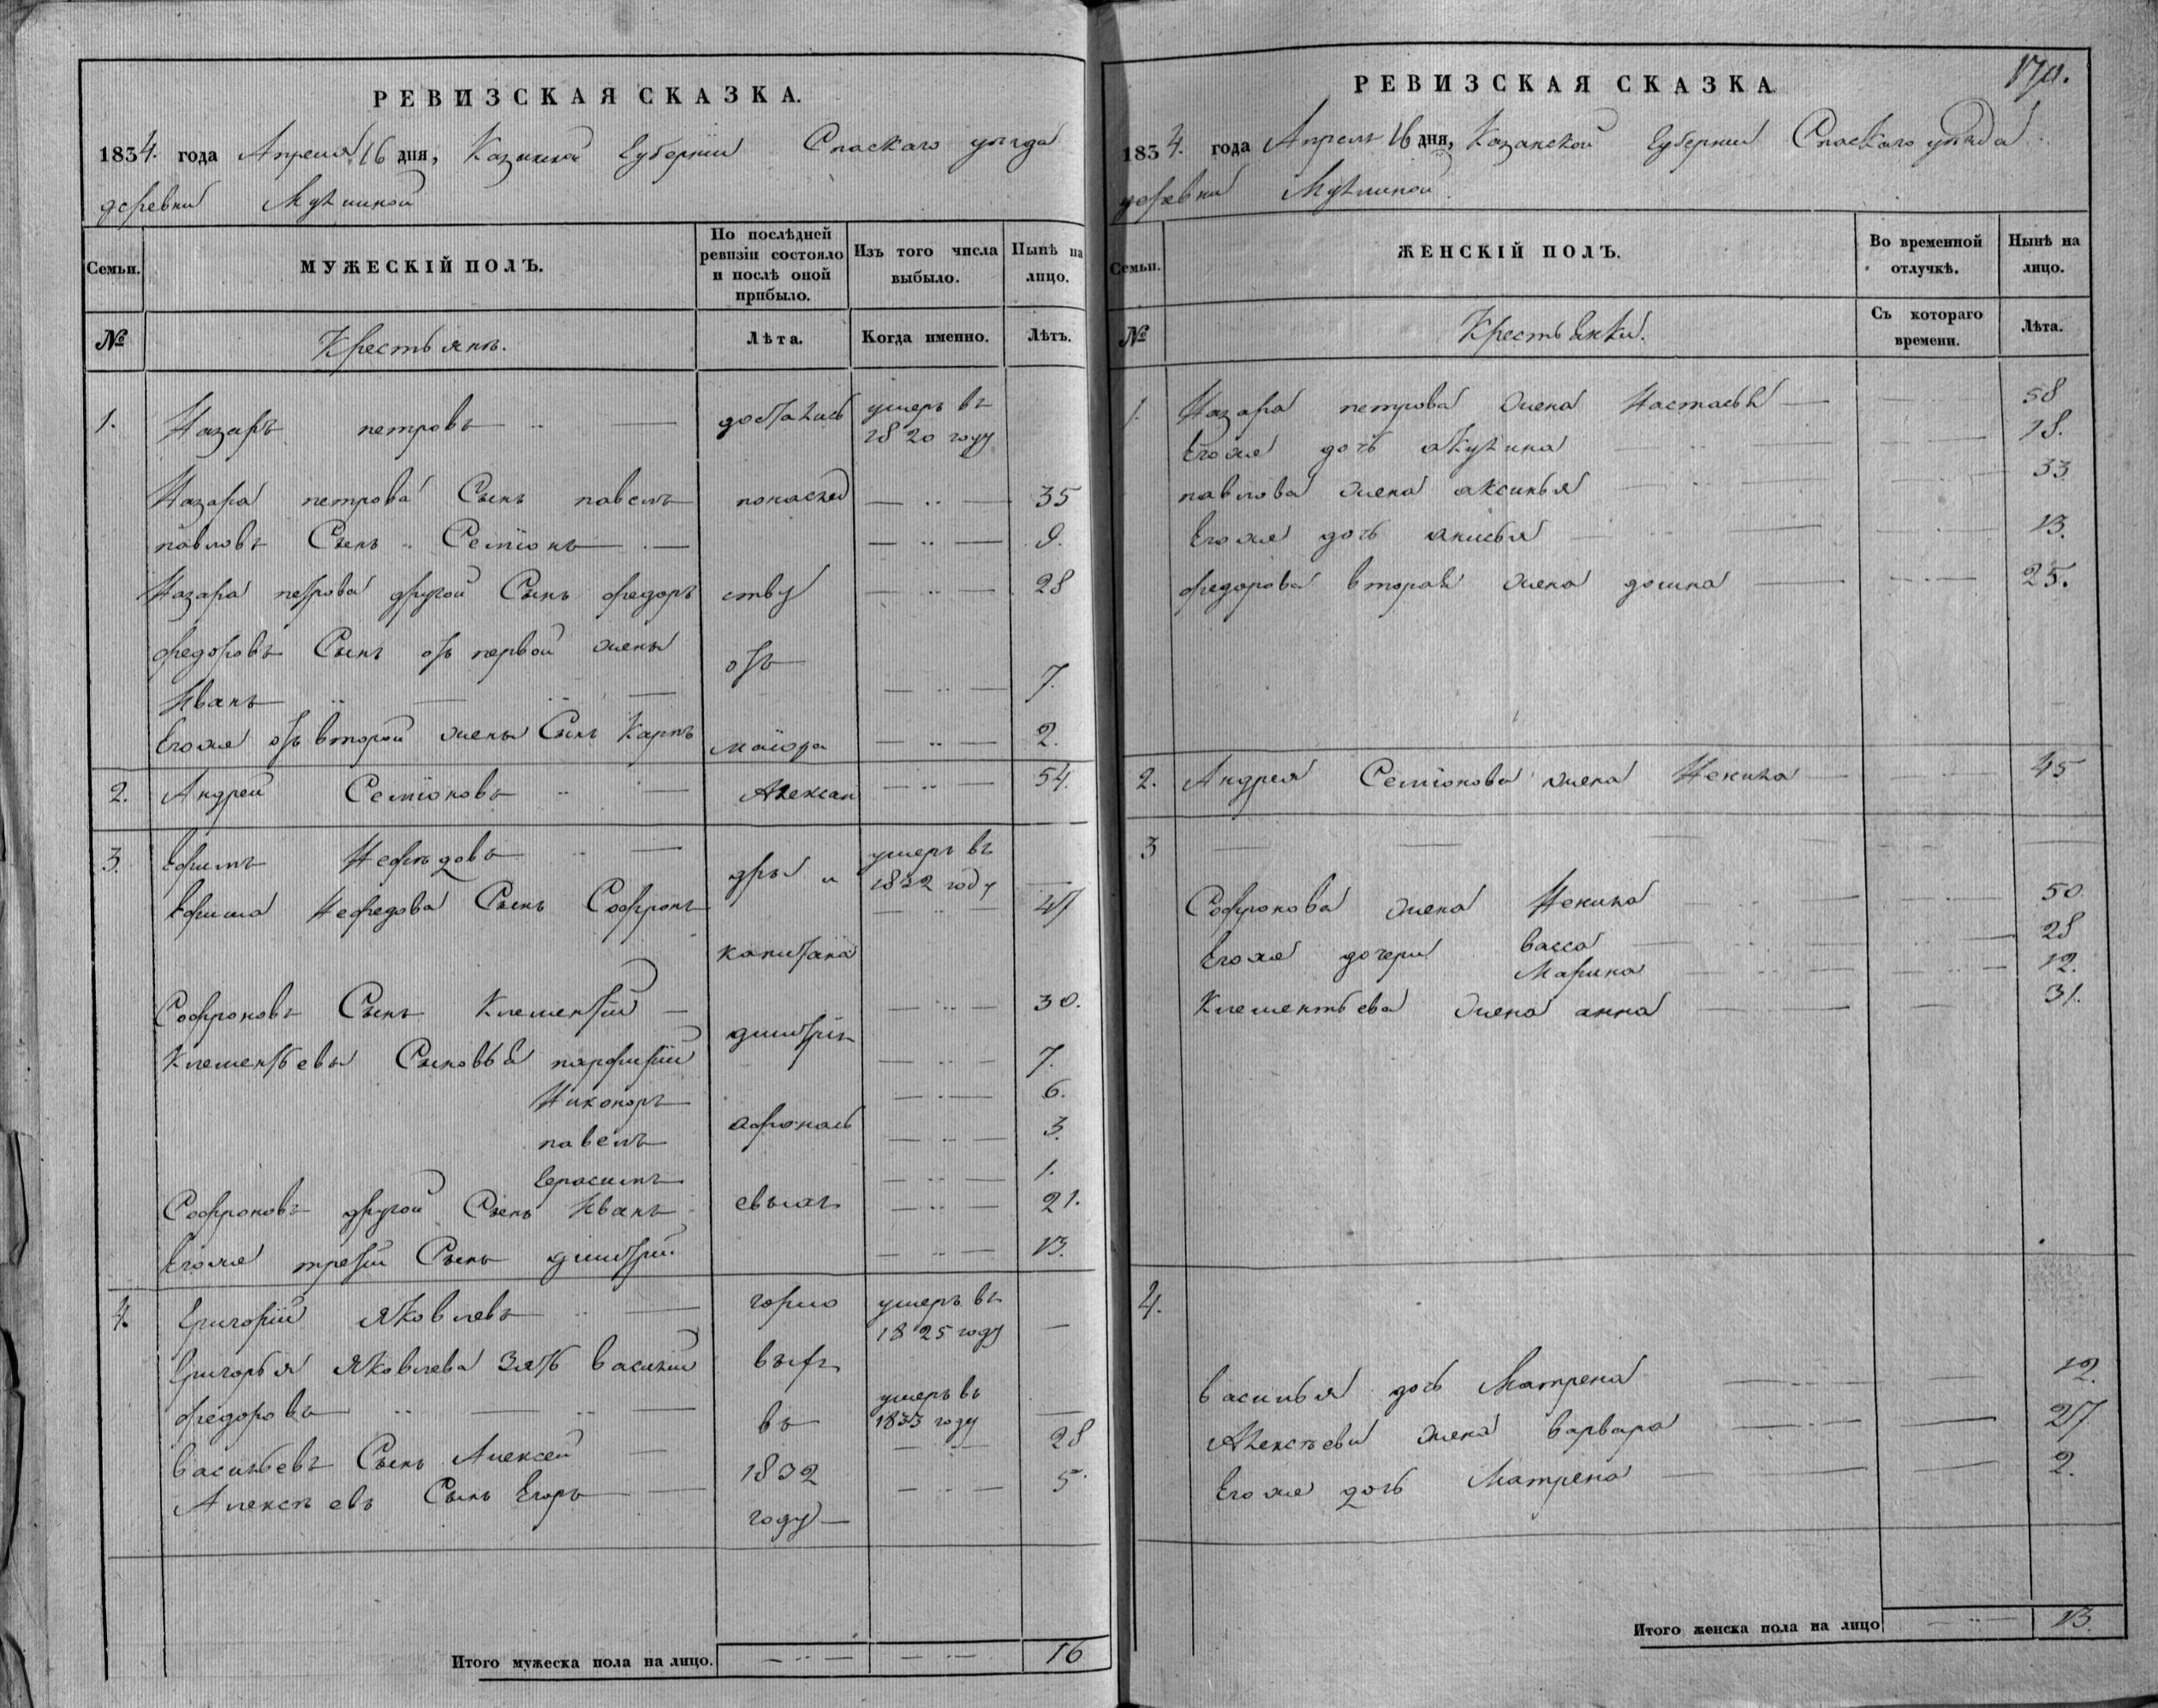 РЕВИЗСКАЯ СКАЗКА.
1834. года Апреля 16 дня, Казанской Губернии Спаскаго уѣзда
деревни
Семьи.
МУЖЕСКІЙ ПОЛЪ.
По послѣдней ревизіи состояло и послѣ оной прибыло.
Изъ того числа выбыло.
Нынѣ на лицо.
№
Крестьянъ.
Лѣта.
Когда именно.
Лѣтъ.
1. Назаръ петровъ достались умеръ въ 1820 году
Назара петрова Сынъ павелъ понаслед 35
павловъ Сынъ Семіонъ 9.
Назара петрова другой Сынъ федоръ ству 28
федоровъ Сынъ отъ первой жены отъ
Иванъ 7.
Егоже отъ второй жены Сынъ Карпъ маіора 2.
2. Андрей Семіоновъ Алексан 54.
3. Ефимъ Нефедовъ дры и умеръ въ 1832 году —
Ефима Нефедова Сынъ Софронъ 47
капитана
Софроновъ Сынъ Клементій 30.
дмитрія
Клементьевы Сыновья парфитій 7.
Никоноръ 6.
павелъ афонась 3.
Герасимъ 1.
Софроновъ другой Сынъ Иванъ евыхъ 21.
Егоже третій Сынъ дмитрій 13.
4. Григорій Яковлевъ горло умеръ въ 1825 году —
Григорья Яковлева Зять василій выхъ
федоровъ въ умеръ въ 1833 году —
васильевъ Сынъ Алексей 28
1832
Алексѣевъ Сынъ Егоръ 5.
году
Итого мужеска пола на лицо. 16
170.
РЕВИЗСКАЯ СКАЗКА
1834. года Апреля 16 дня, Казанской Губернии Спаскаго уѣзда
деревни
Семьи.
ЖЕНСКІЙ ПОЛЪ.
Во временной отлучкѣ.
Нынѣ на лицо.
№
Крестьянки.
Съ котораго времени.
Лѣта.
1. Назара петрова жена Настасья 58
Егоже дочь акулина 18.
павлова жена аксинья 33
Егоже дочь анисья 13.
федорова вторая жена домна 25.
2. Андрея Семіонова жена Ненила 45
3
Софронова жена Ненила 50
Егоже дочери васса 28
Марина 12.
Клементьева жена анна 31.
4.
васильья дочь Матрена 12.
Алексѣева жена варвара 27
Егоже дочь Матрена 2.
Итого женска пола на лицо 13.